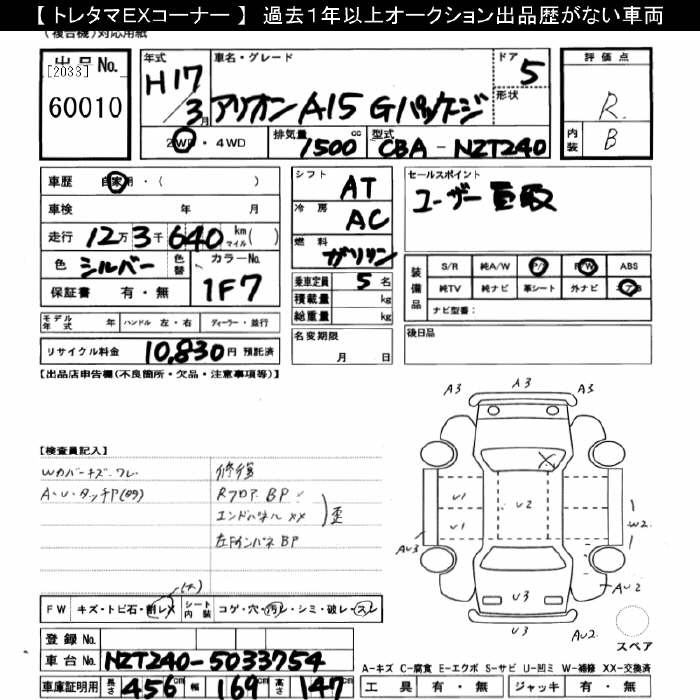 【 トレタマEXコーナー 】 過去1年以上オークション出品歴がない車両
(複合機)対応用紙
出品No.
[2033]
60010
年式
H17/3月
車名・グレード
アリオン A15 Gパッケージ
ドア
5
形状
評価点
R
内装
B
2WD・4WD
排気量
1500 cc
型式
CBA - NZT240
車歴 自家用・( )
車検 年 月
走行 12万3千640 km マイル( )
色 シルバー 色替
カラーNo.
1F7
保証書 有・無
シフト AT
冷房 AC
燃料 ガソリン
乗車定員 5名
積載量 kg
総重量 kg
セールスポイント
ユーザー買取
装備品
S/R 純A/W P/S P/W ABS
純TV 純ナビ 革シート 外ナビ エアB
ナビ型番:
モデル年式 年 ハンドル 左・右 ディーラー・並行
リサイクル料金 10,830円 預託済
名変期限
月 日
後日品
【出品店申告欄(不良箇所・欠品・注意事項等)】
【検査員記入】
Wカバーキズ・ワレ
A・U・タッチP(多)
修復
RフロアBP
エンドパネルXX
歪
左リインパネBP
A3 A3 A3
U1 U2 U1 W2
AU3 AU2
U3
U3 AU2
スペア
FW キズ・トビ石・割レX (大)
シート内装 コゲ・穴・汚レ・シミ・破レ・スレ
登録No.
車台No. NZT240-5033754
車庫証明用 長さ 456cm 幅 169cm 高さ 147cm
A-キズ C-腐食 E-エクボ S-サビ U-凹ミ W-補修 XX-交換済
工具 有・無 ジャッキ 有・無